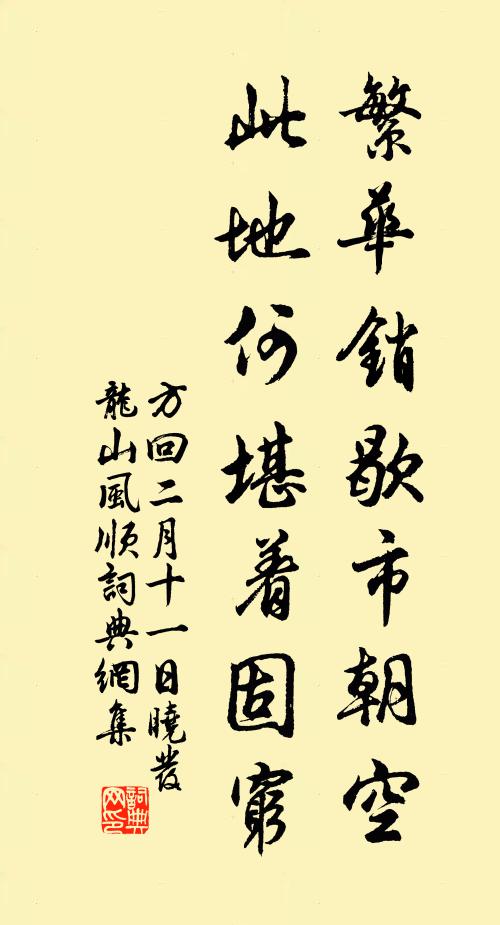 繁華銷歇市朝空
此地何堪着固窮
方回二月十一日曉發
龍山風順詞典網集
詞典網印